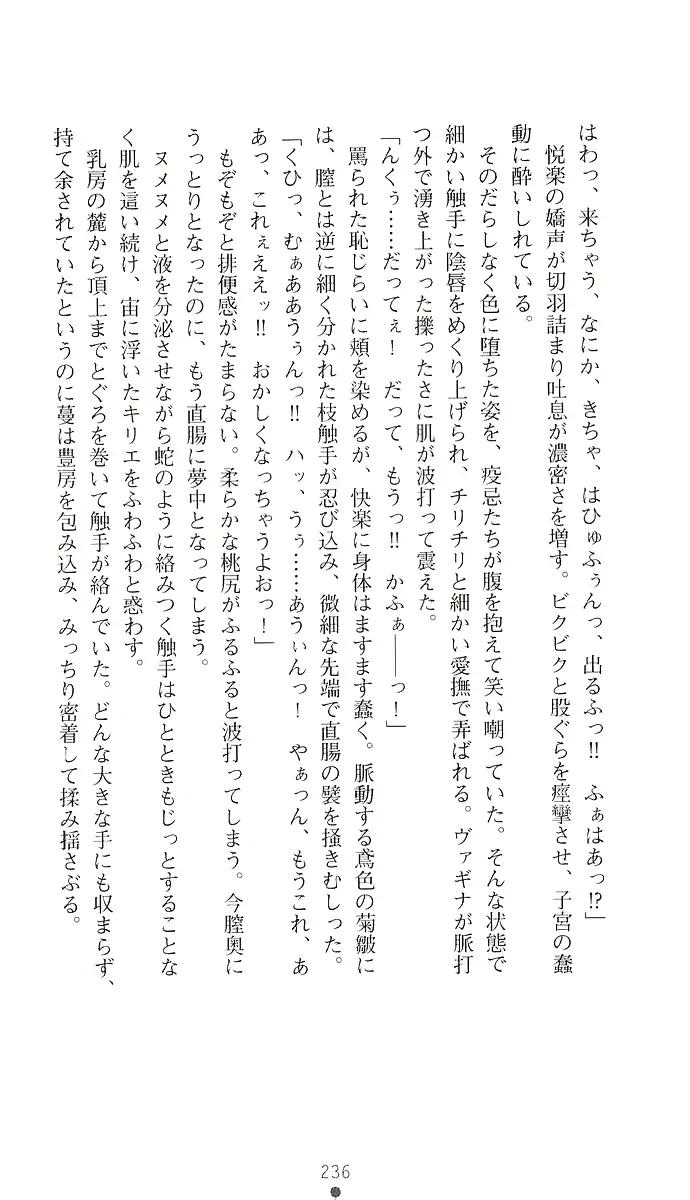 はわっ、来ちゃう、なにか、きちゃ、はひゅふぅんっ、出るふっ!!　ふぁはあっ!?」
　悦楽の嬌声が切羽詰まり吐息が濃密さを増す。ビクビクと股ぐらを痙攣させ、子宮の蠢
動に酔いしれている。
　そのだらしなく色に堕ちた姿を、疫忌たちが腹を抱えて笑い嘲っていた。そんな状態で
細かい触手に陰唇をめくり上げられ、チリチリと細かい愛撫で弄ばれる。ヴァギナが脈打
つ外で湧き上がった擽ったさに肌が波打って震えた。
「んくぅ……だってぇ！　だって、もうっ!!　かふぁ――っ！」
　罵られた恥じらいに頬を染めるが、快楽に身体はますます蠢く。脈動する鳶色の菊皺に
は、膣とは逆に細く分かれた枝触手が忍び込み、微細な先端で直腸の襞を掻きむしった。
「くひっ、むぁああうぅんっ!!　ハッ、うぅ……あうぃんっ！　やぁっん、もうこれ、あ
あっ、これぇええッ!!　おかしくなっちゃうよおっ！」
　もぞもぞと排便感がたまらない。柔らかな桃尻がふるふると波打ってしまう。今膣奥に
うっとりとなったのに、もう直腸に夢中となってしまう。
　ヌメヌメと液を分泌させながら蛇のように絡みつく触手はひとときもじっとすることな
く肌を這い続け、宙に浮いたキリエをふわふわと惑わす。
　乳房の麓から頂上までとぐろを巻いて触手が絡んでいた。どんな大きな手にも収まらず、
持て余されていたというのに蔓は豊房を包み込み、みっちり密着して揉み揺さぶる。
236